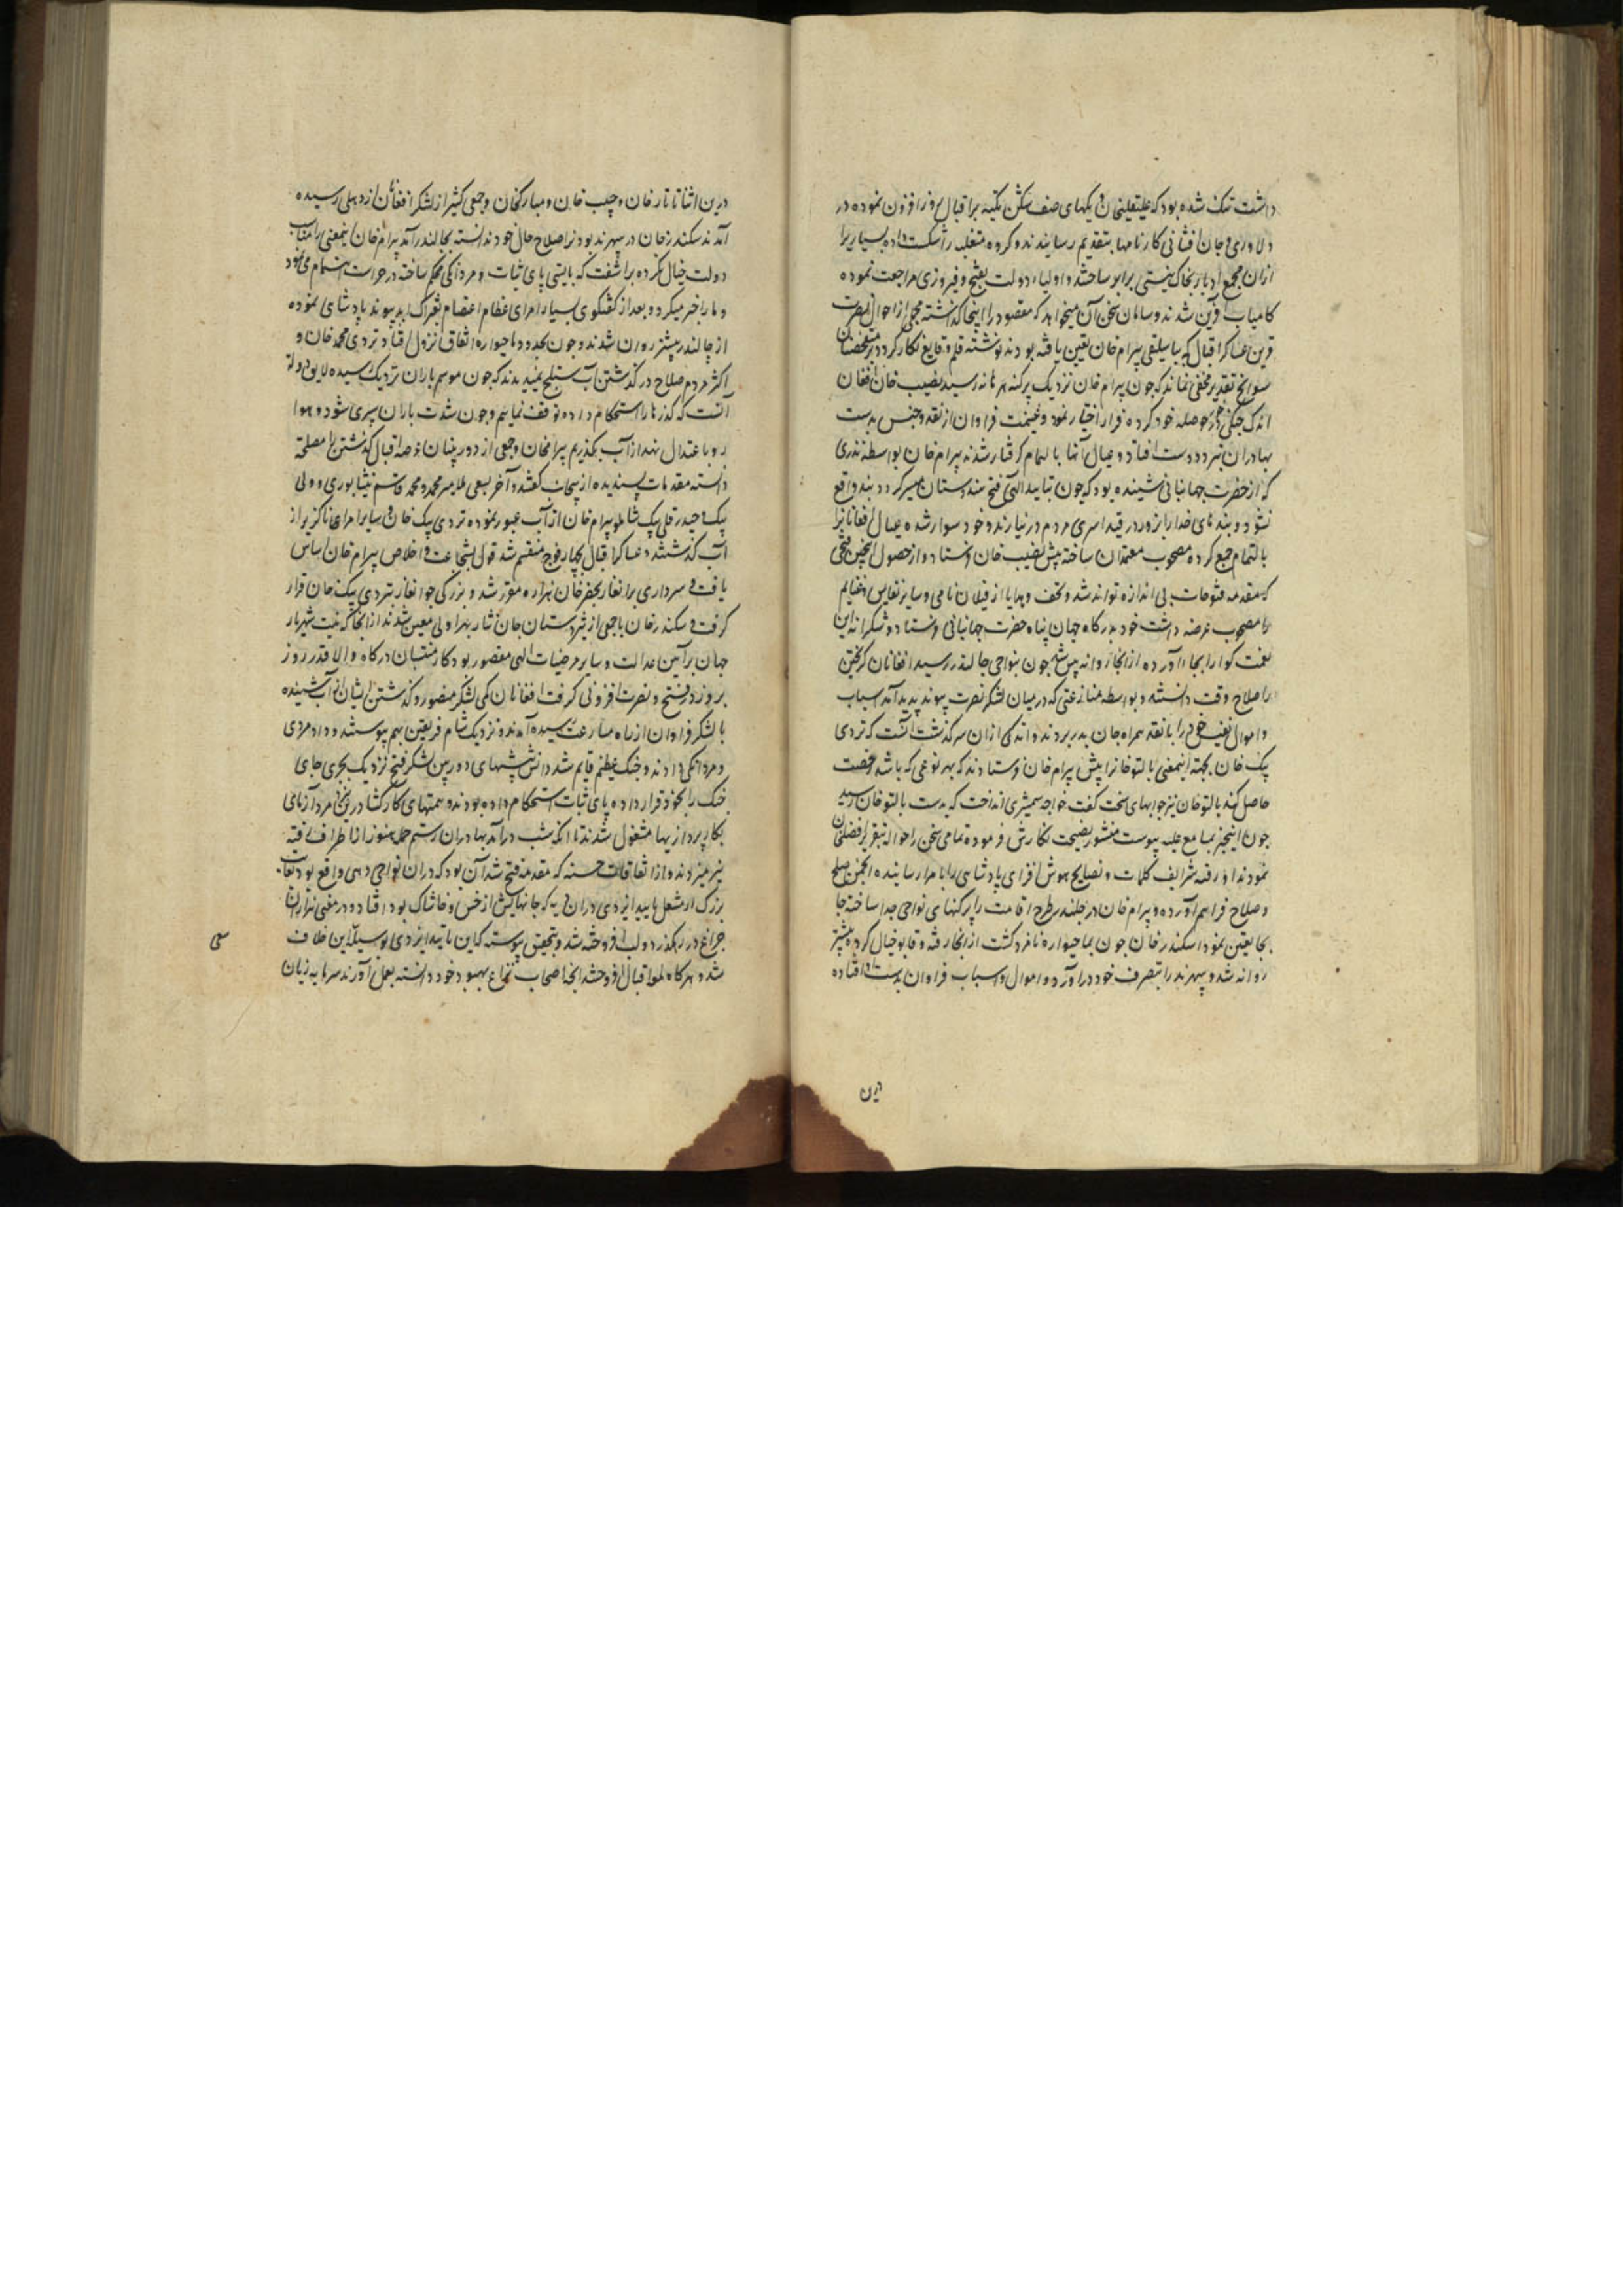 داشت تنک شده بود که علیقلیخان و یکهای صف شکن تکیه بر اقبال روز افزون نموده در
دلاوری و جان افشانی کارنامها بتقدیم رسانیدند و کروه متغلبه را شکست داده بسیاریرا
ازان مجمع ادبار بخاک نیستی برابر ساختند و اولیاء دولت بفتح و فیروزی مراجعت نموده
کامیاب قرین شدند و سامان سخن آن میخواهد که مقصود را اینجا کذاشته مجملی از احوال نصرت
قرین عساکر اقبال که بباسلیقی بیرام خان تعین یافته بودند نوشته قلم وقایع نکار کردد بر متفحصان
سوانح تقدیر مخفی نماند که چون بیرام خان نزدیک پرکنه هرهانه رسید نصیب خان افغان
اندک جنکی در خور حوصله خود کرده فرار اختیار نمود و غنیمت فراوان از نقد و جنس بدست
بهادران نبرد دوست افتاد و عیال آنها بالتمام کرفتار شدند بیرام خان بواسطه نذری
که از حضرت جهانبانی شنیده بود که چون بتایید الهی فتح هندوستان میسر کردد بند واقع
نشود و بندهای خدا را بزور در قید اسری مردم در نیارند و خود سوار شده عیال افغانانرا
بالتمام جمع کرده مصحوب معتمدان ساخته پیش نصیب خان فرستاد و از حصول اینچنین فتحی
که مقدمه فتوحات بی اندازه تواند شد و تحف و هدایا از فیلان نامی و سایر نفایس و غنایم
را مصحوب عرضه داشت خود بدرکاه جهان پناه حضرت جهانبانی فرستاد و شکرانه این
نعمت کوارا بجا آورده ازانجا روانه پیش شد چون بنواحی جالندر رسید افغانان کریختن
را صلاح وقت دانسته و بواسطه منازعتی که در میان لشکر نصرت پیوند پدید آمد اسباب
و اموال نفیس خود را با نقد همراه جان بدر بردند و اندکی ازان سرکذشت آنست که تردی
بیک خان بجهة اینمعنی بالتو خانرا پیش بیرام خان فرستادند که بهر نوعی که باشد رخصت
حاصل کند بالتو خان نیز جوابهای سخت کفت خواجه شمشیری انداخت که بدست بالتو خان رسید
چون اینخبر بمسامع علیه پیوست منشور نصیحت نکارش فرموده تمامی سخن را حواله بتقریر افضلخان
نمودند او رفته شرایف کلمات و نصایح هوش افزای پادشاهی را بامرا رسانیده انجمن صلح
و صلاح فراهم آورده و بیرام خان در جلندر طرح اقامت را پرکنهای نواحی جدا ساخته جا
بجا تعین نمود اسکندر خان چون بماچیواره نامزد کشت ازانجا رفته و قابو خیال کرده پیشتر
روانه شد و سهرند را بتصرف خود درآورد و اموال و اسباب فراوان بدست افتاده
درین
درین اثنا تاتار خان و حبیب خان و مبارکخان و جمعی کثیر از لشکر افغانان از دهلی رسیده
آمدند سکندر خان در سهرند بودنرا صلاح حال خود ندانسته بجالندر آمد بیرام خان اینمعنی را مناسب
دولت خیال نکرده برآشفت که بایستی پای ثبات و مردانکی محکم ساخته در حراست اهتمام می نمود
و ما را خبر میکرد و بعد از کفتکوی بسیار امرای عظام اعتصام بفتراک ابد پیوند پادشاهی نموده
از جالندر پیشتر روان شدند و چون بحدود ماچیواره اتفاق نزول افتاد تردی محمد خان و
اکثر مردم صلاح در کذشتن آب ستلج نمیدیدند که چون موسم باران نزدیک رسیده لایق دولت
آنست که کذرها را استحکام داده توقف نمائیم و چون شدت باران سپری شود و هوا
رو باعتدال نهد از آب بکذریم بیرامخان و جمعی از دوربینان عرصه اقبال کذشتن را مصلحة
دانسته مقدمات پسندیده از پیجانب کفتند و آخر بسعی ملا پیر محمد و محمد قاسم نیشابوری و ولی
بیک و حیدر قلی بیک شاملو بیرام خان از آب عبور نموده تردی بیک خان و سایر امرای ناکزیر از
آب کذشتند و عساکر اقبال بچهار فوج منقسم شد قول بشجاعت و اخلاص بیرام خان اساس
یافت و سرداری برانغار بخضر خان هزاره مقرر شد و بزرکی جوانغار بتردی بیک خان قرار
کرفت و سکندر خان با جمعی از تیزدستان جان نثار بهراولی معین شدند ازانجا که نیت شهریار
جهان بر آئین عدالت و سایر مرضیات الهی مقصور بود کار منتسبان درکاه والا قدر روز
بروز در فتح و نصرت افزونی کرفت افغانان کمی لشکر منصور و کذشتن ایشان از آب شنیده
با لشکر فراوان از راه مسارعت رسیده آمدند و نزدیک شام فریقین بهم پیوستند و داد مردی
و مردانکی دادند و جنک عظیم قایم شد دانش پیشهای دوربین لشکر فتح نزدیک بجری جای
جنک را بخود قرار داده پای ثبات استحکام داده بودند و همتهای کارکشا در ترنجان مرد آزمای
بکار پردازیها مشغول شدند تا آنکه شب درآمد بهادران رستم حمله هنوز از اطراف رفته
تیر میزدند و از اتفاقات حسنه که مقدمه فتح شد آن بود که دران نواحی دهی واقع بود ناکاه
بزرک از مشعل تایید ایزدی دران دیه که خانهایش از خس و خاشاک بود افتاد و در معنی هزاران
چراغ در رهکذر دولت افروخته شد و بتحقیق پیوسته که این تایید ایزدی بوسیله این خلاف
شد و هرکاه لوا اقبال افروختند آنچه اصحاب نزاع بهبود خود دانسته بعمل آورند سرمایه زیان